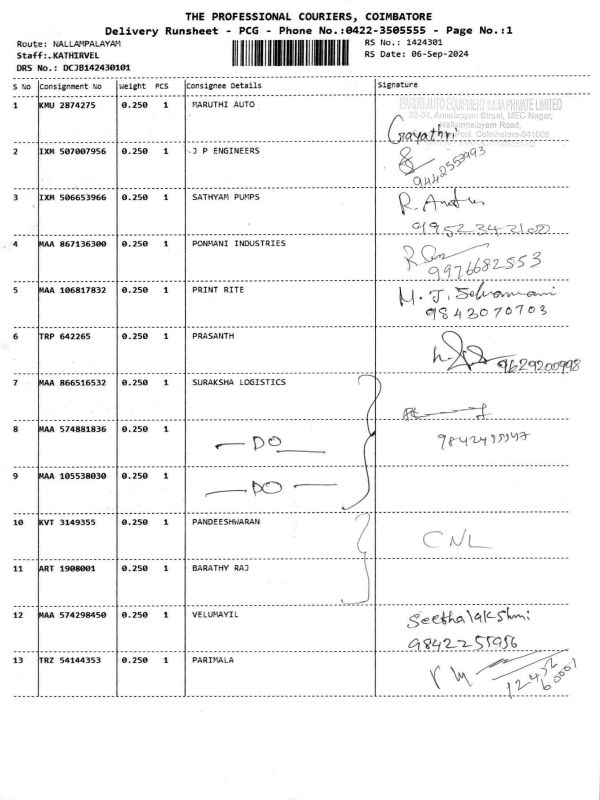 THE PROFESSIONAL COURIERS, COIMBATORE
Delivery Runsheet - PCG - Phone No.:0422-3505555 - Page No.:1
Route: NALLAMPALAYAM RS No.: 1424301
Staff:.KATHIRVEL RS Date: 06-Sep-2024
DRS No.: DCJB142430101
S No Consignment No Weight PCS Consignee Details Signature
1 KMU 2874275 0.250 1 MARUTHI AUTO
MARUTI AUTO EQUIPMENT INDIA PRIVATE LIMITED
32-34, Annalappan Street, MEC Nagar,
Nallampalayam Road,
Coimbatore-641006
Gayathri
2 IXM 507007956 0.250 1 J P ENGINEERS
9442553993
3 IXM 506653966 0.250 1 SATHYAM PUMPS
4 MAA 867136300 0.250 1 PONMANI INDUSTRIES
9976682553
5 MAA 106817832 0.250 1 PRINT RITE M. J. Selvamani
9843070703
6 TRP 642265 0.250 1 PRASANTH
9629200998
7 MAA 866516532 0.250 1 SURAKSHA LOGISTICS
8 MAA 574881836 0.250 1 — DO —
9 MAA 105538030 0.250 1 — DO —
10 KVT 3149355 0.250 1 PANDEESHWARAN CNL
11 ART 1908001 0.250 1 BARATHY RAJ
12 MAA 574298450 0.250 1 VELUMAYIL Seethalakshmi
9842255956
13 TRZ 54144353 0.250 1 PARIMALA